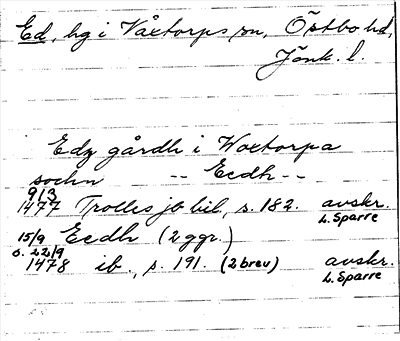 Ed, hg i Våxtorps sn, Östbo hd,
Jönk. l.
Edz gårdh i Woxtorpa
sochn -- Eedh--
9/3
1477 Trolles jb bil, s. 182. avskr.
L. Sparre
15/9 Eedh (2 ggr.)
o. 22/9
1478 ib., s. 191. (2 brev) avskr.
L. Sparre